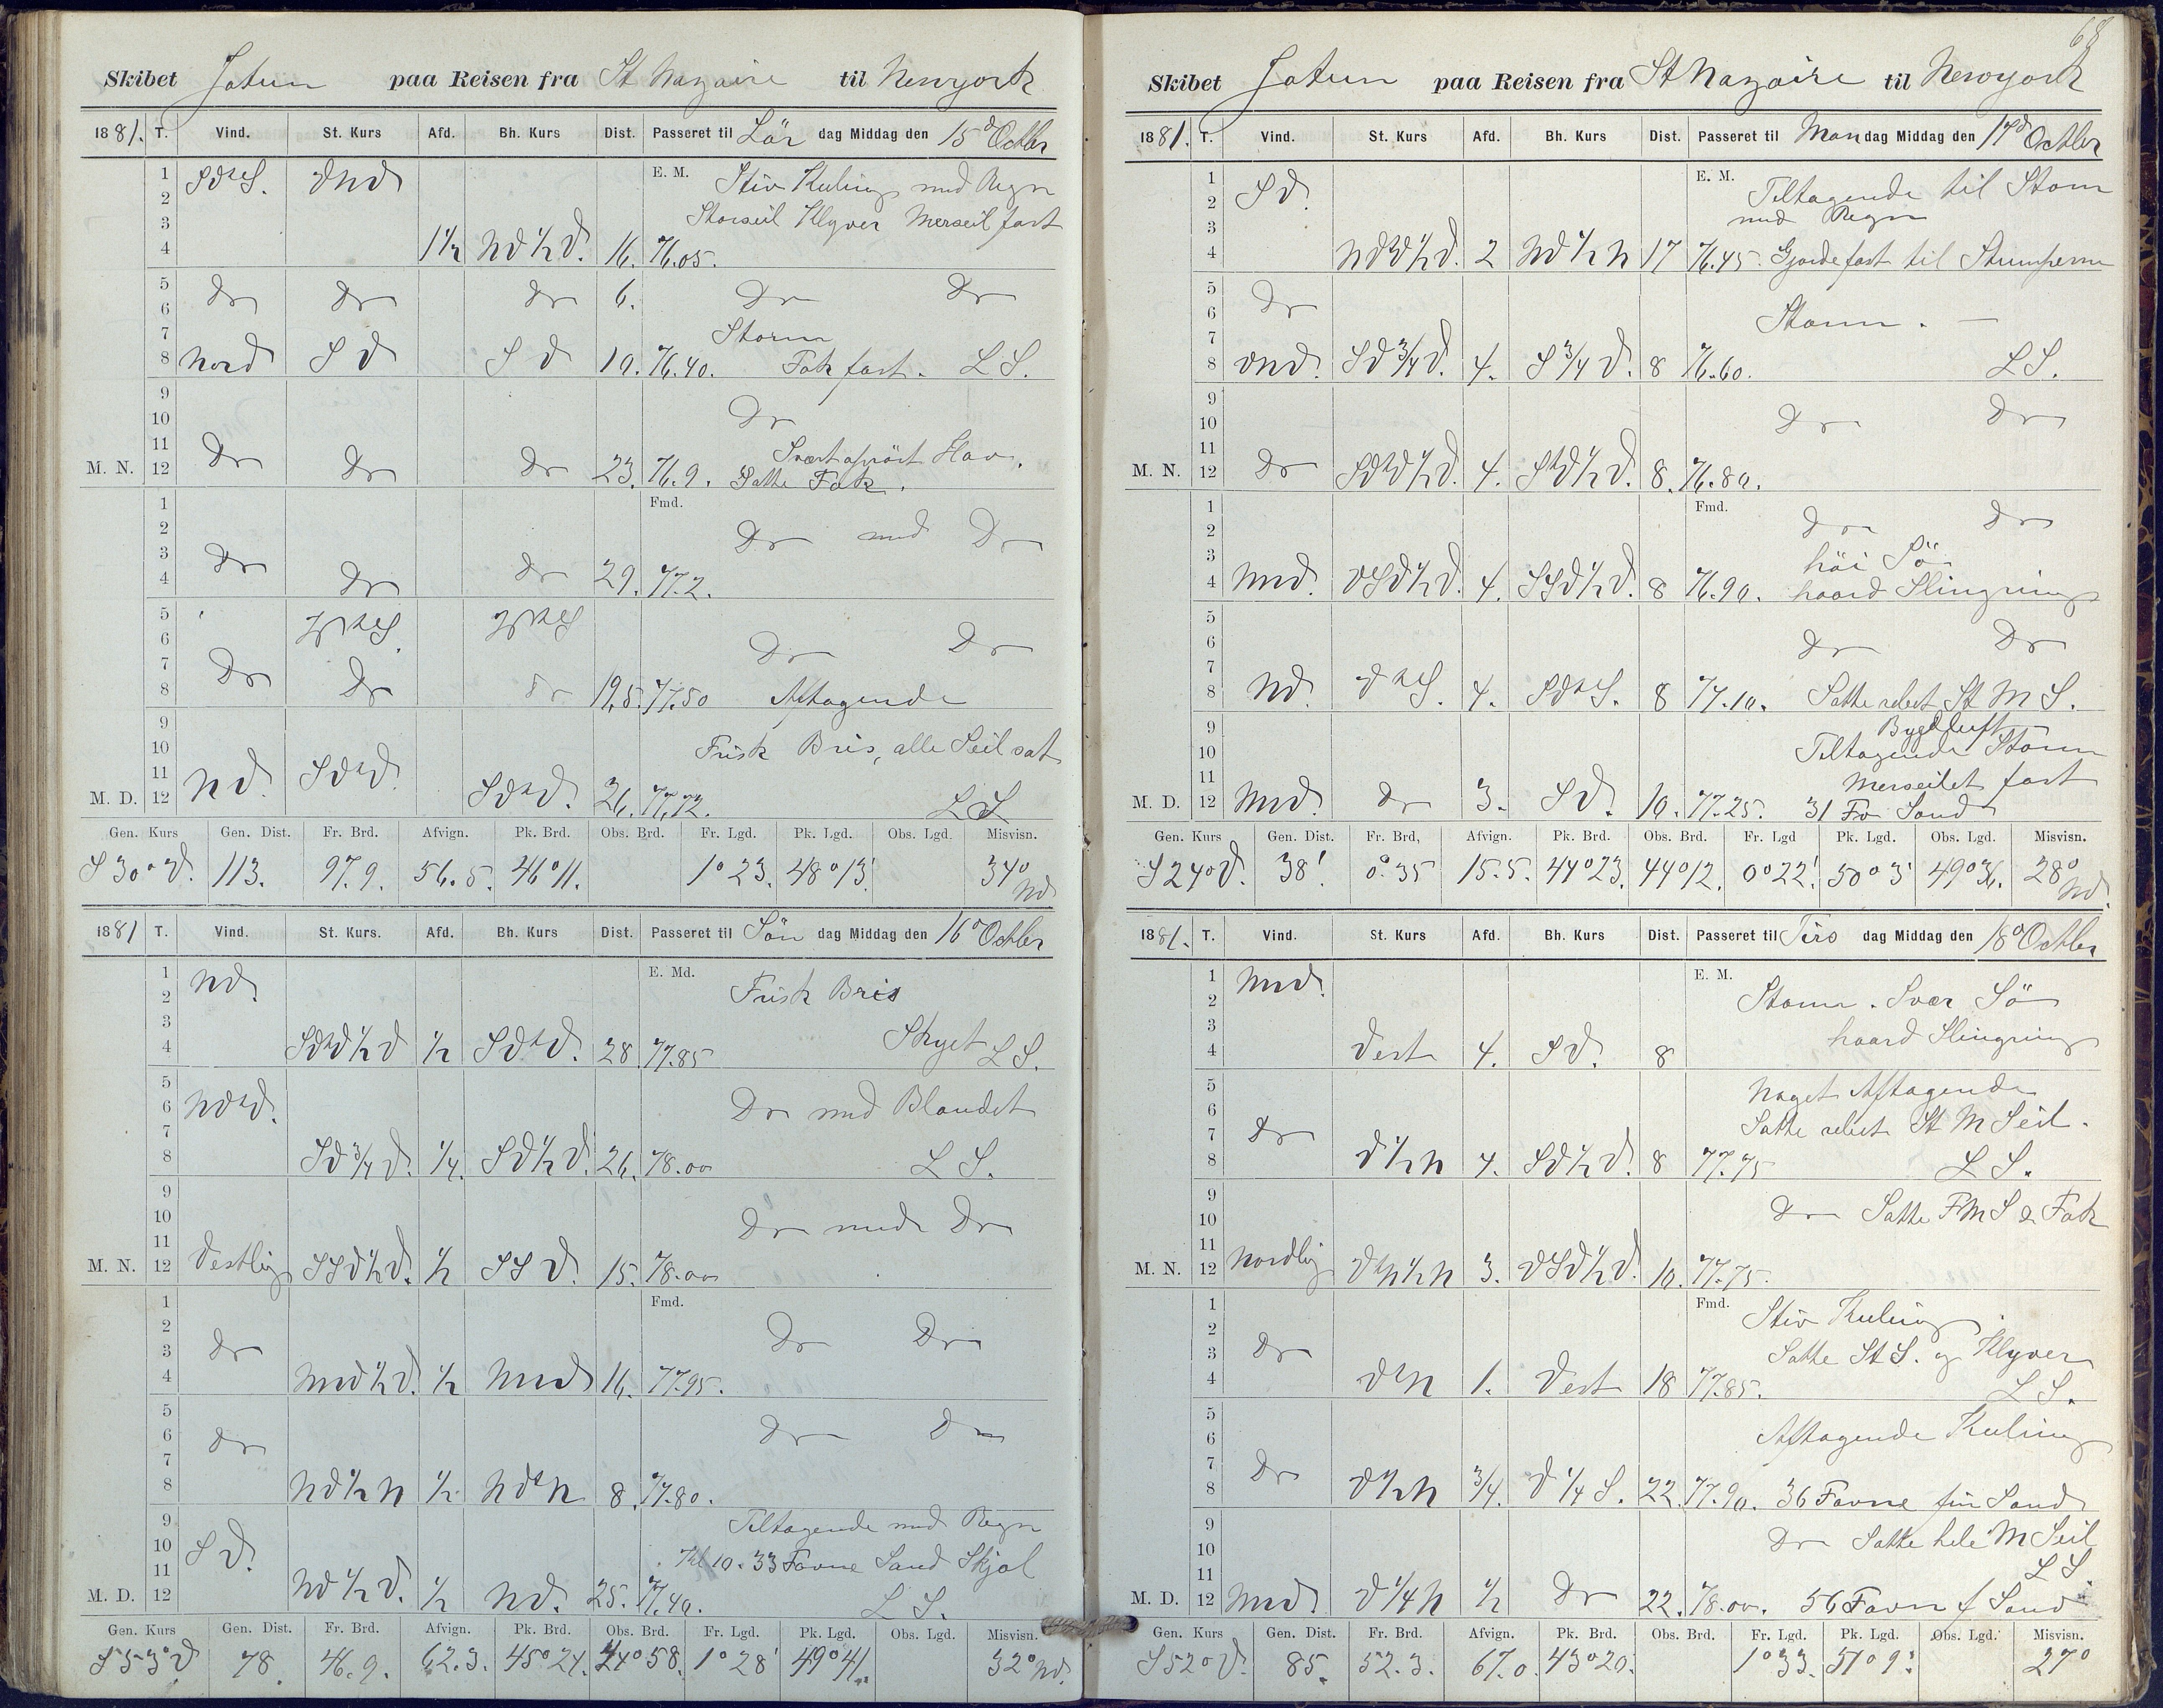 68
Skibet Jotun paa Reisen fra St Nazaire til Newyork
1881. T. Vind. St. Kurs Afd. Bh. Kurs Dist. Passeret til Lör dag Middag den 15d Octbr
E. M. Stiv Kuling med Regn
SVtS. VNV
Storseil Klyver Merseil fast
1 2 3 4 1½ NV½V. 16. 76.05.
5 6 Do Do Do 6. Do Do
Storm
7 8 Nord SV SV 19. 76.40. Fok fast. LS.
9 10 Do
Svært oprört Hav.
11 M. N. 12 Do Do Do 23. 76.9. Satte Fok.
Fmd.
1 2 Do med Do
3 4 Do Do Do 29. 77.2.
5 6 Do Do
7 8 Do Do Do 19,5. 77.50 Aftagende
9 10 Frisk Bris, alle Seil sat
11 M. D. 12 NV. SVtV. SVtV. 26. 77.72. LS
Gen. Kurs Gen. Dist. Fr. Brd. Afvign. Pk. Brd. Obs. Brd. Fr. Lgd. Pk. Lgd. Obs. Lgd. Misvisn.
S30°V. 113. 97.9. 56.5. 46°11. 1°23. 48°13'. 34° NV
1881 T. Vind. St. Kurs. Afd. Bh. Kurs Dist. Passeret til Sön dag Middag den 16d Octbr
E. Md. Frisk Bris
1 2 NV.
3 4 SVtV½V ½ SVtV. 28. 77.85 Skyet LS.
5 6 NVtV. Do med Blandet
7 8 SV¾V. ¼. SV½V. 26. 78.00 LS.
9 10 Do med Do
11 M. N. 12 Vestlig SSV½V. ½ SSV. 15. 78.00
Fmd.
1 2 Do Do
3 4 Do NNV½V. ½ NNV 16. 77.95.
5 6 Do Do Do
7 8 NV½N ½ NVtN 8. 77.80.
9 Tiltagende med Regn
10 SV. Kl 10. 33 Favne Sand Skjæl
11 M. D. 12 NV½V. ½ NV. 25. 77.40. LS.
Gen. Kurs Gen. Dist. Fr. Brd. Afvign. Pk. Brd. Obs. Brd. Fr. Lgd. Pk. Lgd. Obs. Lgd. Misvisn.
S53°V 78. 46.9. 62.3. 45°24. 44°58. 1°28' 49°41. 32° NV.
Skibet Jotun paa Reisen fra St Nazaire til Newyork
1881. T. Vind. St. Kurs Afd. Bh. Kurs Dist. Passeret til Man dag Middag den 17d Octbr
E. M. Tiltagende til Storm
1 2 SV. med Regn
3 4 NVtV½V. 2 NV½N 17 76.45. Gjorde fast til Stumperne
5 6 Do
Storm.
7 8 VNV. SV¾V. 4. S¾V. 8 76.60. LS.
9 10 Do Do
11 M. N. 12 Do SVtV½V. 4. StV½V. 8. 76.80.
Fmd.
1 2 Do Do
höi Sö
3 4 NNV. VSV½V. 4. SSV½V. 8 76.90. haard Slingring
5 6 Do Do
7 8 NV. VtS. 4. SVtS. 8 77.10. Satte rebet St M S.
Bygdluft
9 10 Tiltagende Storm
Merseilet fast
11 M. D. 12 NNV. Do 3. SV. 10. 77.25. 31 Fv Sand
Gen. Kurs Gen. Dist. Fr. Brd, Afvign. Pk. Brd. Obs. Brd. Fr. Lgd Pk. Lgd. Obs. Lgd. Misvisn.
S24°V. 38'. 0°.35 15.5. 44°23. 44°12. 0°22'. 50°3' 49°36. 28° NV.
1881. T. Vind. St. Kurs Afd. Bh. Kurs Dist. Passeret til Tirs dag Middag den 18d Octbr
E. M.
1 2 NNV. Storm. Svær Sö
3 4 Vest 4. SV. 8 haard Slingring
5 Noget Aftagende
6 Satte rebet St M Seil.
7 8 Do V½N 4. SV½V. 8 77.75 LS.
9 10 Do Satte F M S & Fok
11 M. N. 12 Nordlig VtN½N 3. VSV½V. 10. 77.75.
Fmd. Stiv Kuling
1 2 Satte St S. og Klyver
3 4 Do VtN 1. Vest 18 77.85. LS.
5 6 Aftagende Kuling
7 8 Do V½N ¾. V¼S. 22. 77.90. 36 Favne fin Sand
9 10 Do Satte hele M Seil
LS.
11 M. D. 12 NNV. V¼N ½ Do 22. 78.00. 56 Favn f Sand
Gen. Kurs Gen. Dist. Fr. Brd. Afvign. Pk. Brd. Obs. Brd. Fr. Lgd. Pk. Lgd. Obs. Lgd. Misvisn.
S52°V. 85. 52.3. 67.0. 43°20. 1°33. 51°9' 27°